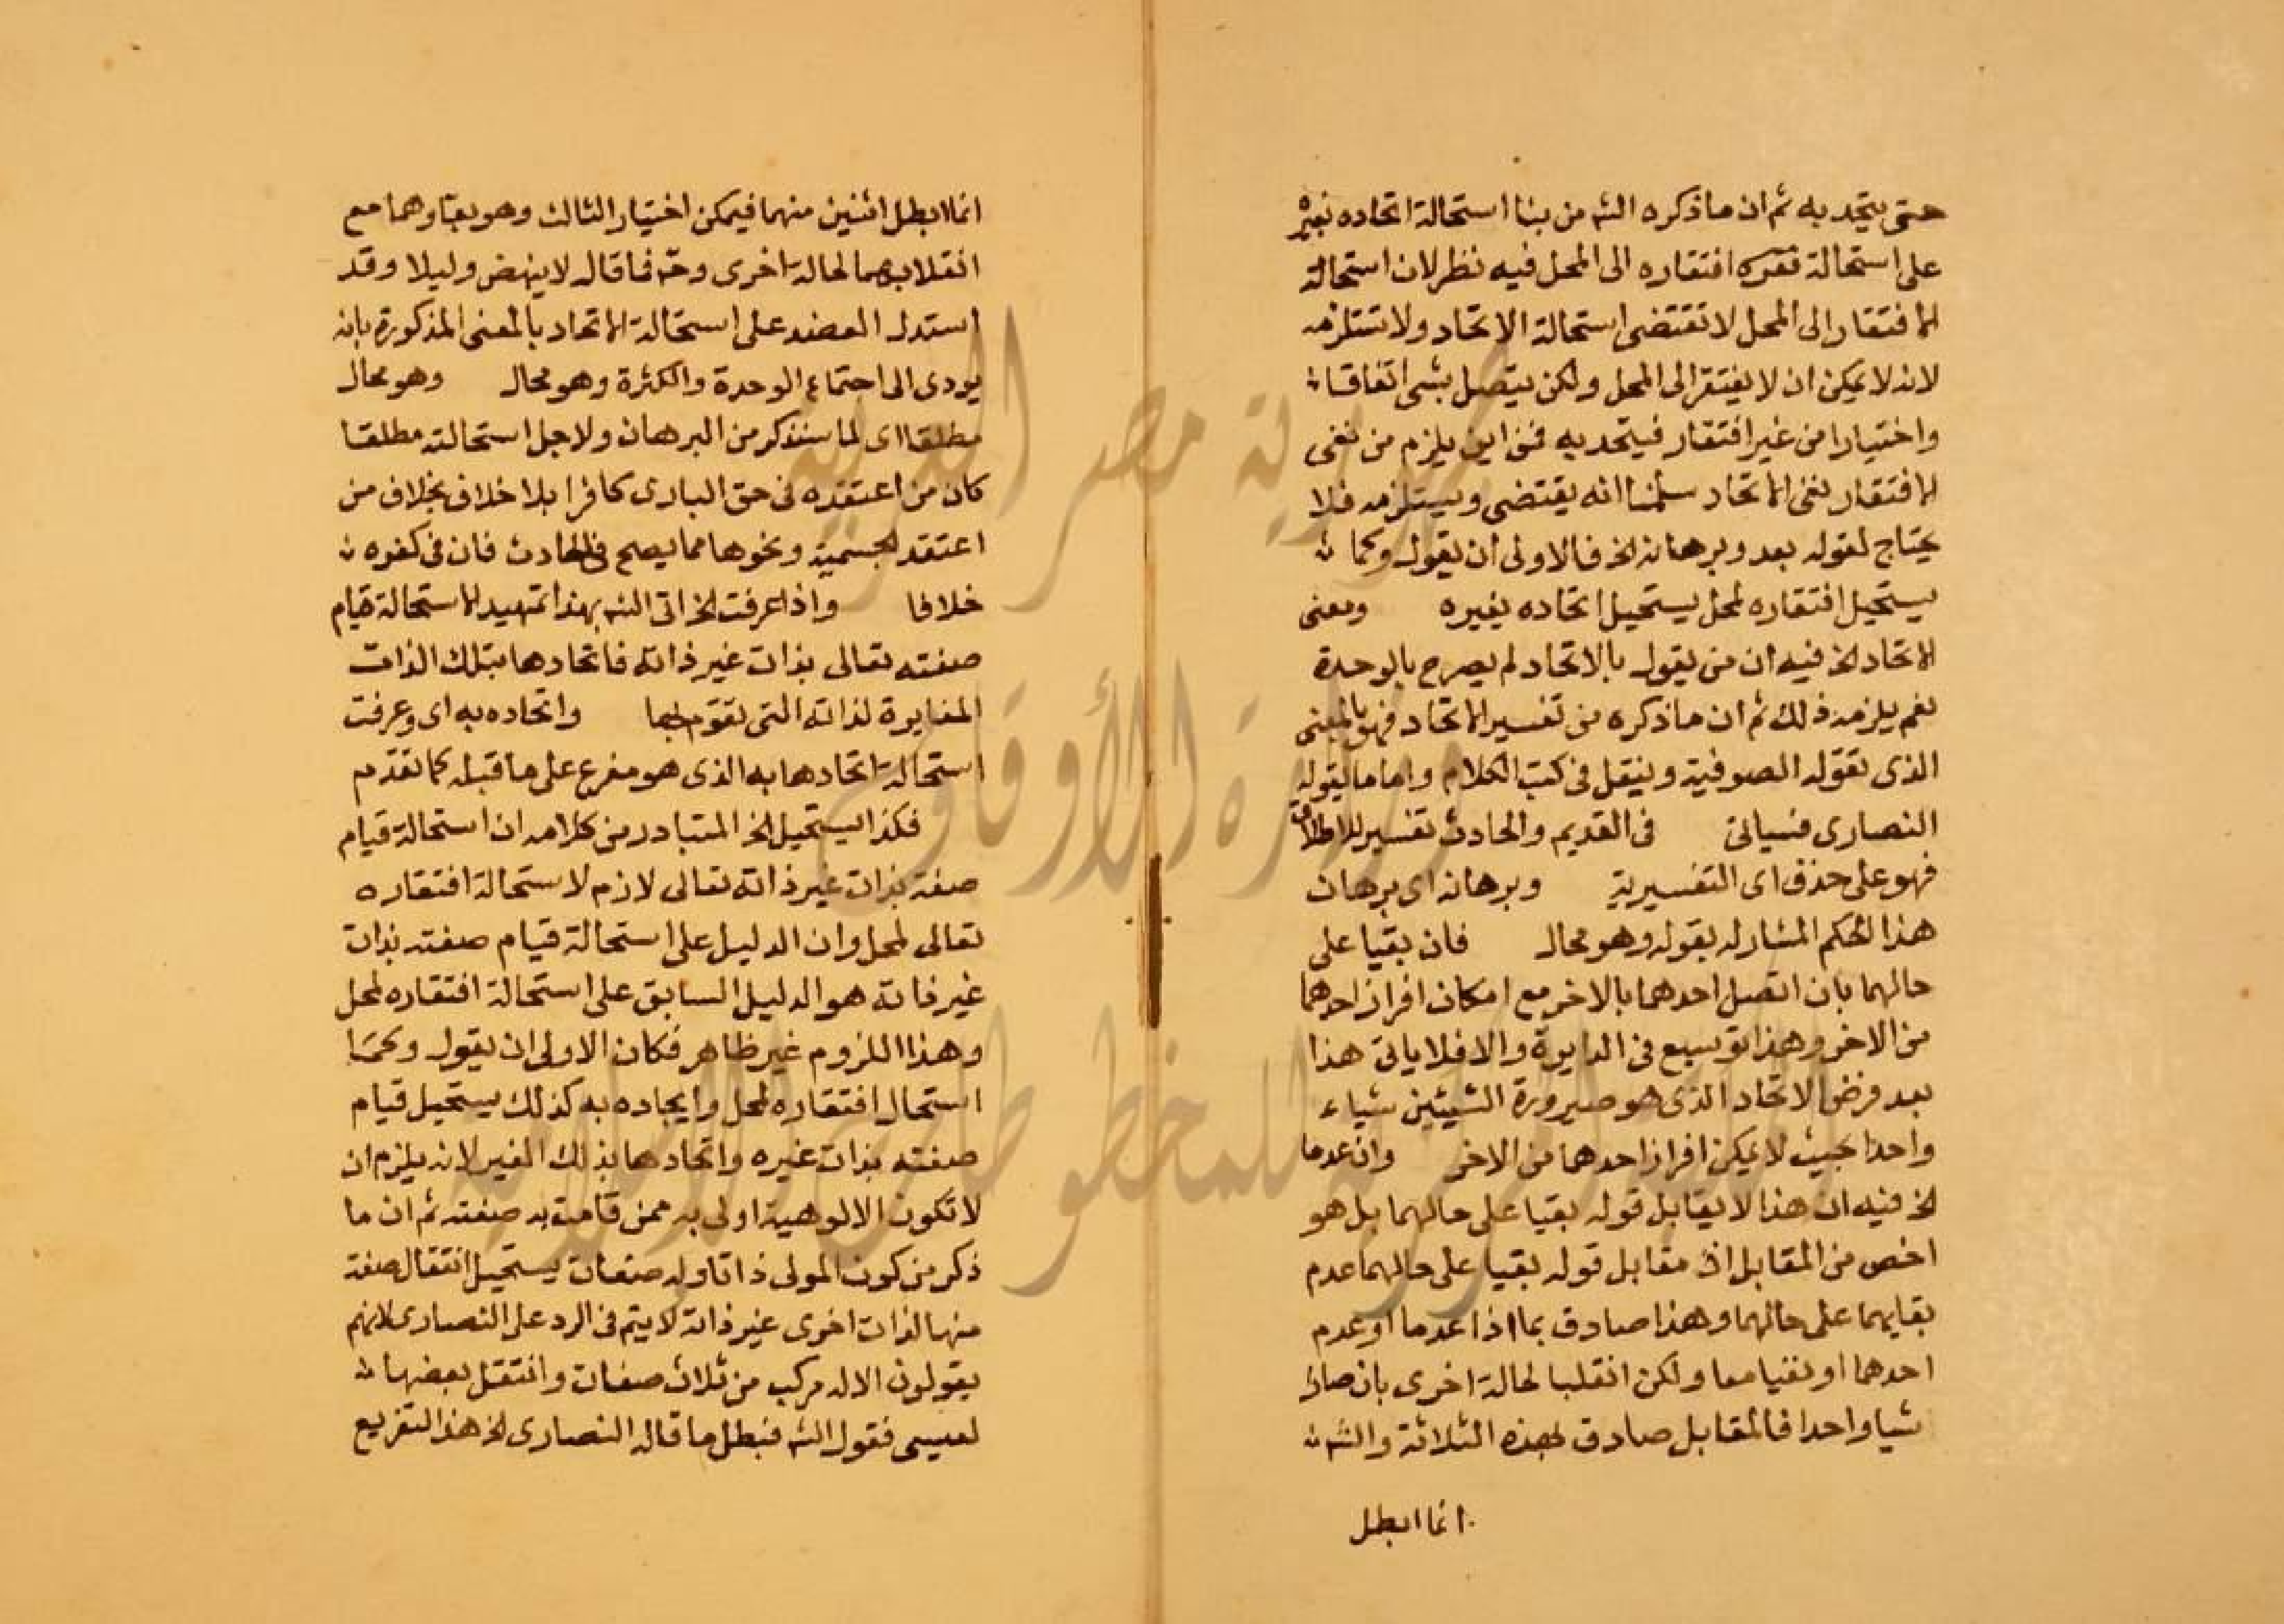 حتى يتحد به ثم ان ما ذكره الشه من بنا استحالة اتحاده بغيره
على استحالة افتقاره الى المحل فيه نظر لان استحالة
الافتقار الى المحل لا تقتضى استحالة الاتحاد ولا تستلزمه
لانه لا يمكن ان لا يفتقر الى المحل ولكن يتصل بشى اتفاقا
واختيارا من غير افتقار فيتحد به فمن اين يلزم من نفى
الافتقار نفى الاتحاد سلمنا انه يقتضى ويستلزمه فلا
يحتاج لقوله بعد وبرهانه الخ فالاولى ان يقول وكما
يستحيل افتقاره لمحل يستحيل اتحاده بغيره ومعنى
الاتحاد الخ فيه ان من يقول بالاتحاد لم يصرح بالوحدة
نعم يلزمه ذلك ثم ان ما ذكره من تفسير الاتحاد فهو بالمعنى
الذى تقوله الصوفية وينقل فى كتب الكلام واما ما يقوله
النصارى فسياتى فى القديم والحادث تفسير للاطلاق
فهو على حذف اى التفسيرية وبرهانه اى برهان
هذا الحكم المشار له بقوله وهو محال فان بقيا على
حالهما بان اتصل احدهما بالاخر مع امكان افراز احدهما
من الاخر وهذا توسيع فى الدايرة والا فلا ياتى هذا
بعد فرض الاتحاد الذى هو صيرورة الشيئين شياء
واحدا بحيث لا يمكن افراز احدهما من الاخر وان عدما
الخ فيه ان هذا لا يقابل قوله بقيا على حالهما بل هو
اخص من المقابل اذ مقابل قوله بقيا على حالهما عدم
بقايهما على حالهما وهذا صادق بما اذا عدما او عدم
احدهما او بقيا معا ولكن انقلبا لحالة اخرى بان صارا
شيا واحدا فالمقابل صادق بهذه الثلاثة والشه
انما ابطل
انما ابطل اثنين منهما فيمكن اختيار الثالث وهو بقاوهما مع
انقلابهما لحالة اخرى وحه فما قاله لا ينهض دليلا وقد
استدل العضد على استحالة الاتحاد بالمعنى المذكورة بانه
يودى الى اجتماع الوحدة والكثرة وهو محال وهو محال
مطلقا اى لما سنذكر من البرهان ولاجل استحالته مطلقا
كان من اعتقده فى حق البارى كافرا بلا خلاف بخلاف من
اعتقد الجسمية ونحوها مما يصح فى الحادث فان فى كفره
خلافا واذا عرفت الخ اتى الشه بهذا تمهيد لاستحالة قيام
صفته تعالى بذات غير ذاته فاتحادها بتلك الذات
المغايرة لذاته التى تقوم بها واتحاده به اى وعرفت
استحالة اتحادها به الذى هو مفرع على ما قبله كما تقدم
فكذا يستحيل الخ المتبادر من كلامه ان استحالة قيام
صفته بذات غير ذاته تعالى لازم لاستحالة افتقاره
تعالى لمحل وان الدليل على استحالة قيام صفته بذات
غير ذاته هو الدليل السابق على استحالة افتقاره لمحل
وهذا اللزوم غير ظاهر فكان الاولى ان يقول وكما
استحال افتقاره لمحل وايجاده به كذلك يستحيل قيام
صفته بذات غيره واتحادها بذلك الغير لانه يلزم ان
لا تكون الالوهية اولى به ممن قامت به صفته ثم ان ما
ذكر من كون المولى ذاتا وله صفات يستحيل انتقال صفة
منها لذات اخرى غير ذاته لا يتم فى الرد على النصارى لانهم
يقولون الاله مركب من ثلاث صفات وانتقل بعضها
لعيسى فقول الشه فبطل ما قاله النصارى الخ هذا التفريع
جمهورية مصر العربية
وزارة الأوقاف
المكتبة المركزية للمخطوطات الإسلامية